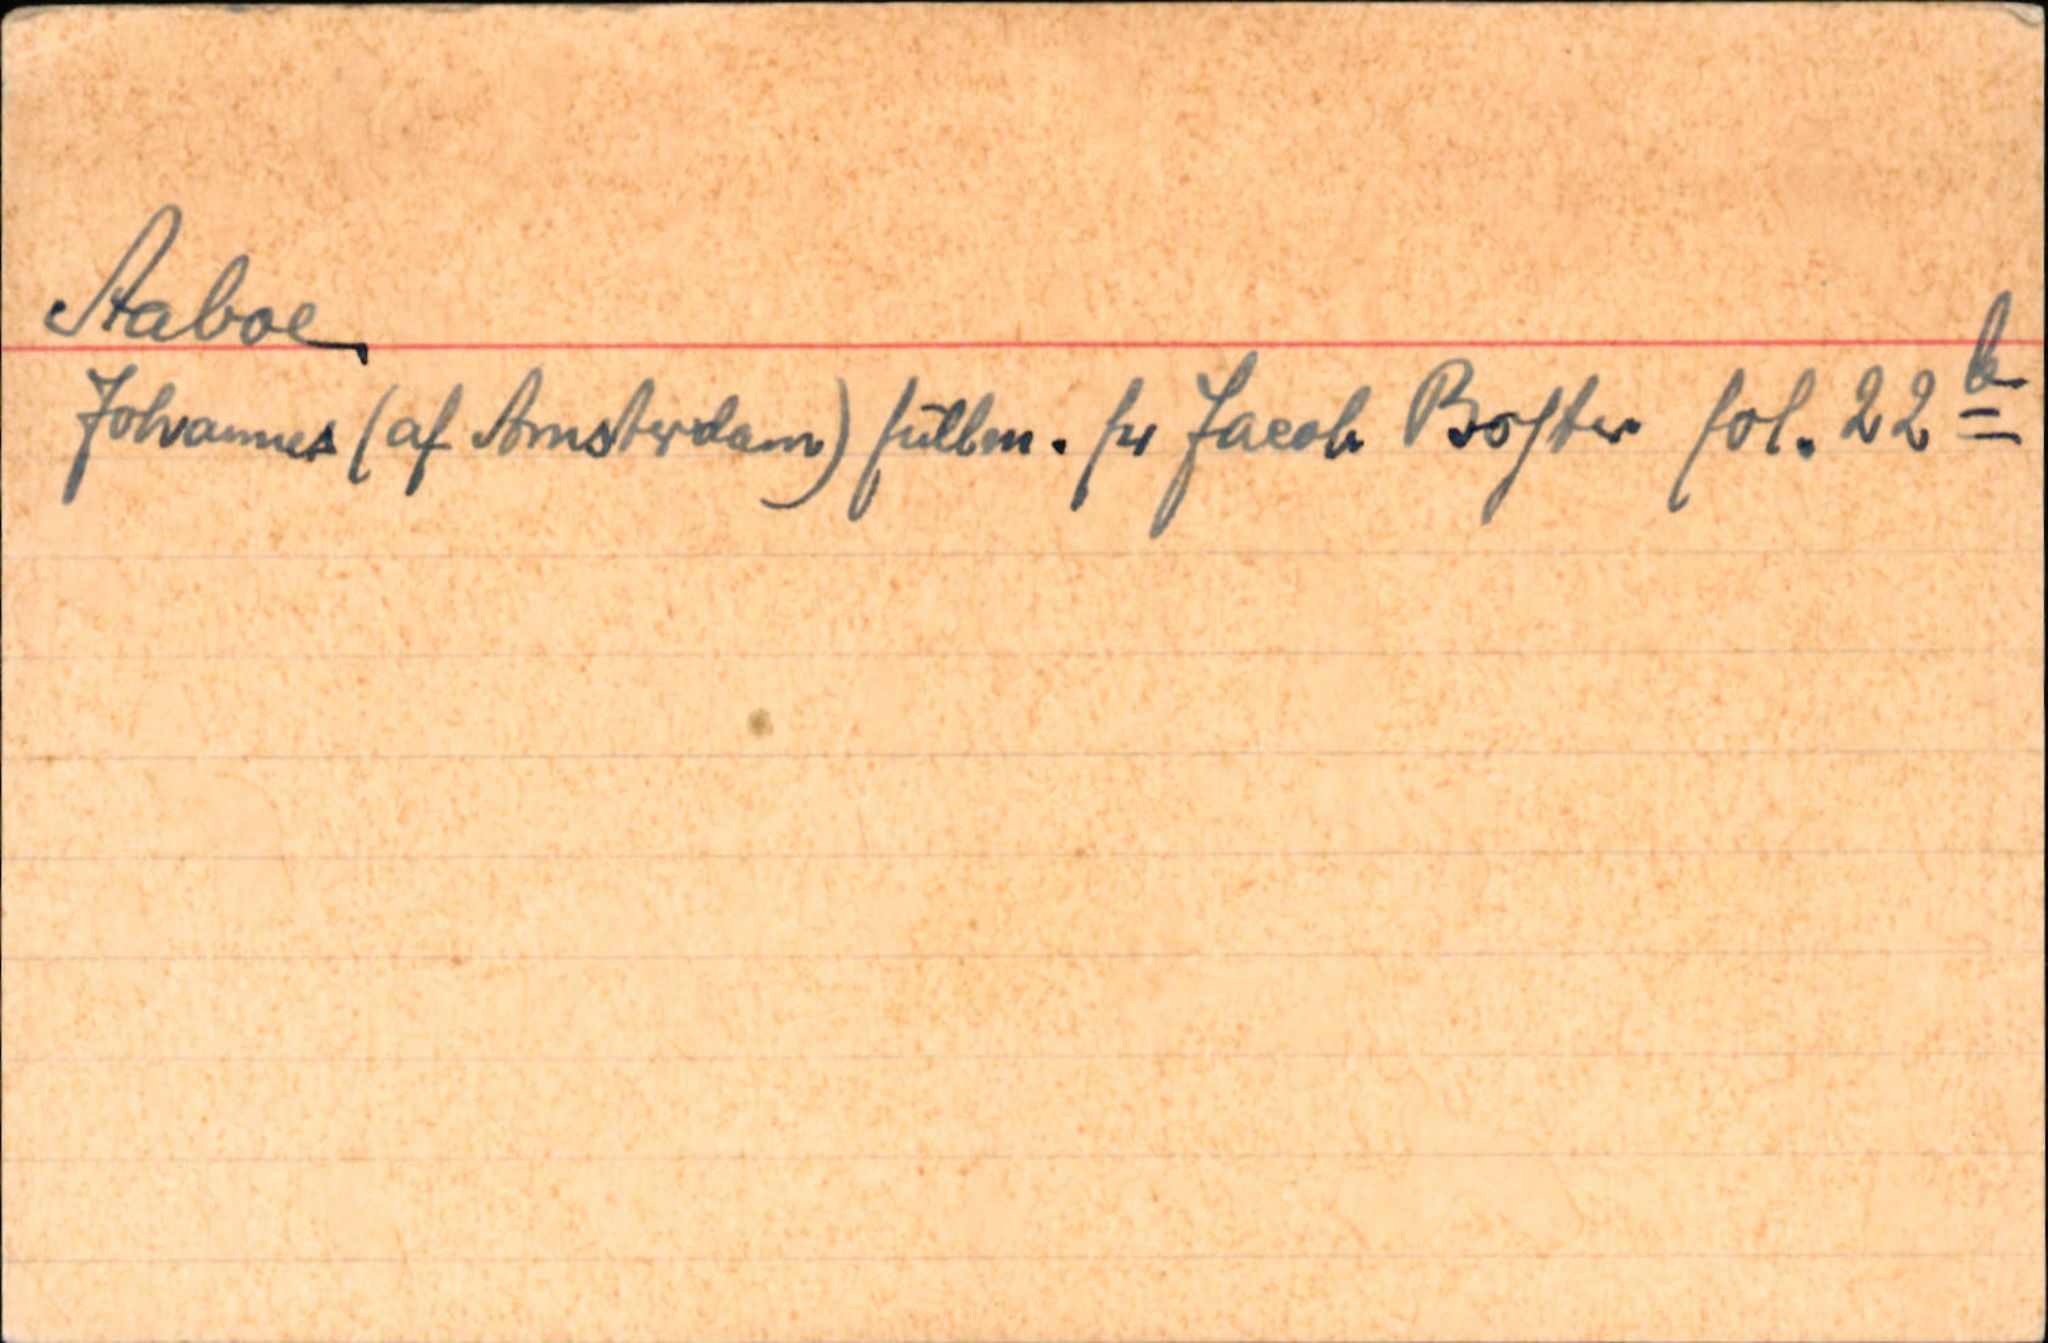 Staboe
Johannes (af Amsterdam) fuldm. fr Jacob fol. 22 b